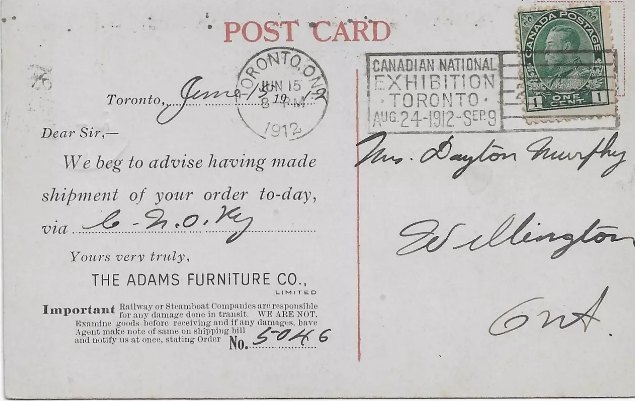 POST CARD
TORONTO, ONT.
JUN 15
8 PM
1912
CANADIAN NATIONAL
EXHIBITION
TORONTO
AUG. 24-1912-SEP 9
CANADA POSTAGE
1 ONE CENT 1
Toronto, June 15 19 12
Dear Sir,—
We beg to advise having made
shipment of your order to-day,
via C. N. O. Ry
Yours very truly,
THE ADAMS FURNITURE CO.,
LIMITED
Important Railway or Steamboat Companies are responsible
for any damage done in transit. WE ARE NOT.
Examine goods before receiving and if any damages, have
Agent make note of same on shipping bill
and notify us at once, stating Order No. 5046
Mrs. Dayton Murphy
Wellington
Ont.